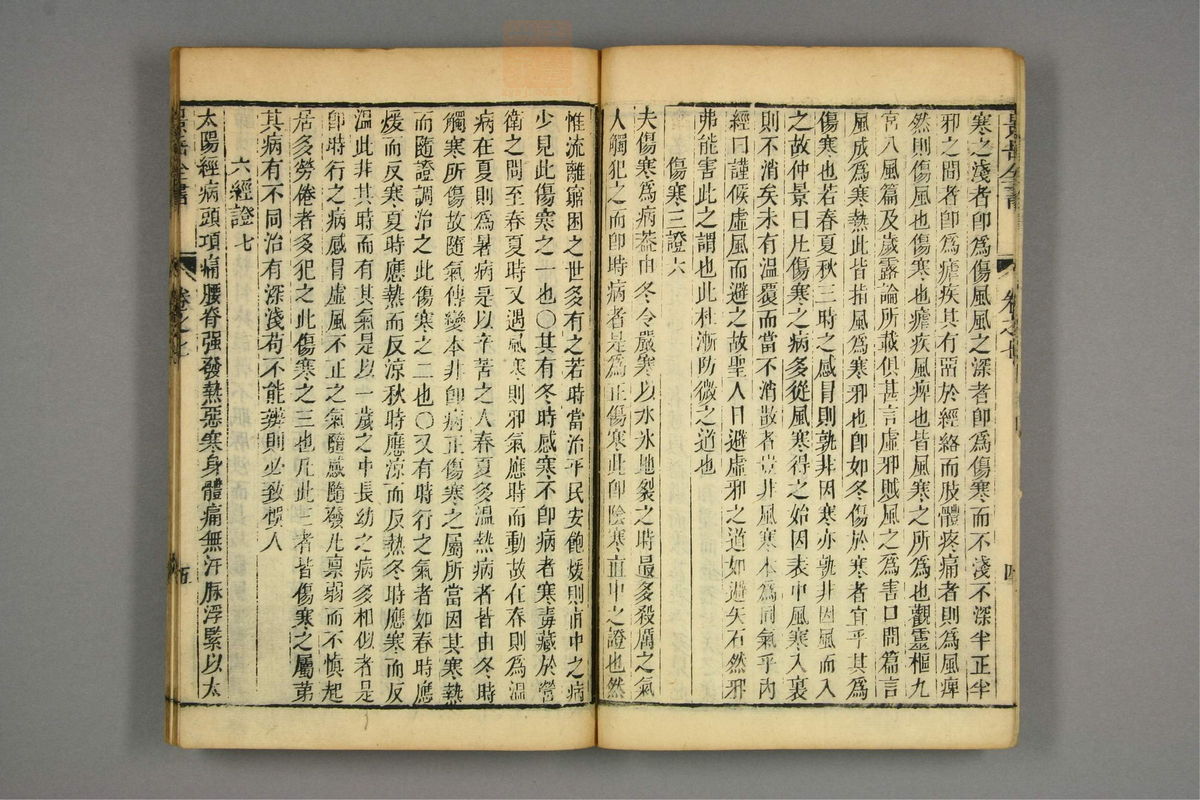 寒之淺者卽爲傷風風之深者卽爲傷寒而不淺不深半正半
邪之間者卽爲瘧疾其有畱於經絡而肢體疼痛者則爲風痺
然則傷風也傷寒也瘧疾風痺也皆風寒之所爲也觀靈樞九
宮八風篇及歲露論所載俱甚言虛邪賊風之爲害口問篇言
風成爲寒熱此皆指風爲寒邪也卽如冬傷於寒者宜乎其爲
傷寒也若春夏秋三時之感冒則孰非因寒亦孰非因風而入
之故仲景曰凡傷寒之病多從風寒得之始因表中風寒入裏
則不消矣未有溫覆而當不消散者豈非風寒本爲同氣乎內
經曰謹候虛風而避之故聖人日避虛邪之道如避矢石然邪
弗能害此之謂也此杜漸防微之道也
傷寒三證六
夫傷寒爲病葢由冬令嚴寒以水冰地裂之時最多殺厲之氣
人觸犯之而卽時病者是爲正傷寒此卽陰寒直中之證也然
惟流離窮困之世多有之若時當治平民安飽煖則直中之病
少見此傷寒之一也〇其有冬時感寒不卽病者寒毒藏於營
衛之間至春夏時又遇風寒則邪氣應時而動故在春則爲溫
病在夏則爲暑病是以辛苦之人春夏多溫熱病者皆由冬時
觸寒所傷故隨氣傳變本非卽病正傷寒之屬所當因其寒熱
而隨證調治之此傷寒之二也〇又有時行之氣者如春時應
煖而反寒夏時應熱而反涼秋時應涼而反熱冬時應寒而反
溫此非其時而有其氣是以一歲之中長幼之病多相似者是
卽時行之病感冒虛風不正之氣隨感隨發凡禀弱而不愼起
居多勞倦者多犯之此傷寒之三也凡此三者皆傷寒之屬第
其病有不同治有深淺苟不能辨則必致悞人
六經證七
太陽經病頭項痛腰脊强發熱惡寒身體痛無汗脈浮緊以太
景岳全書
卷之七
五